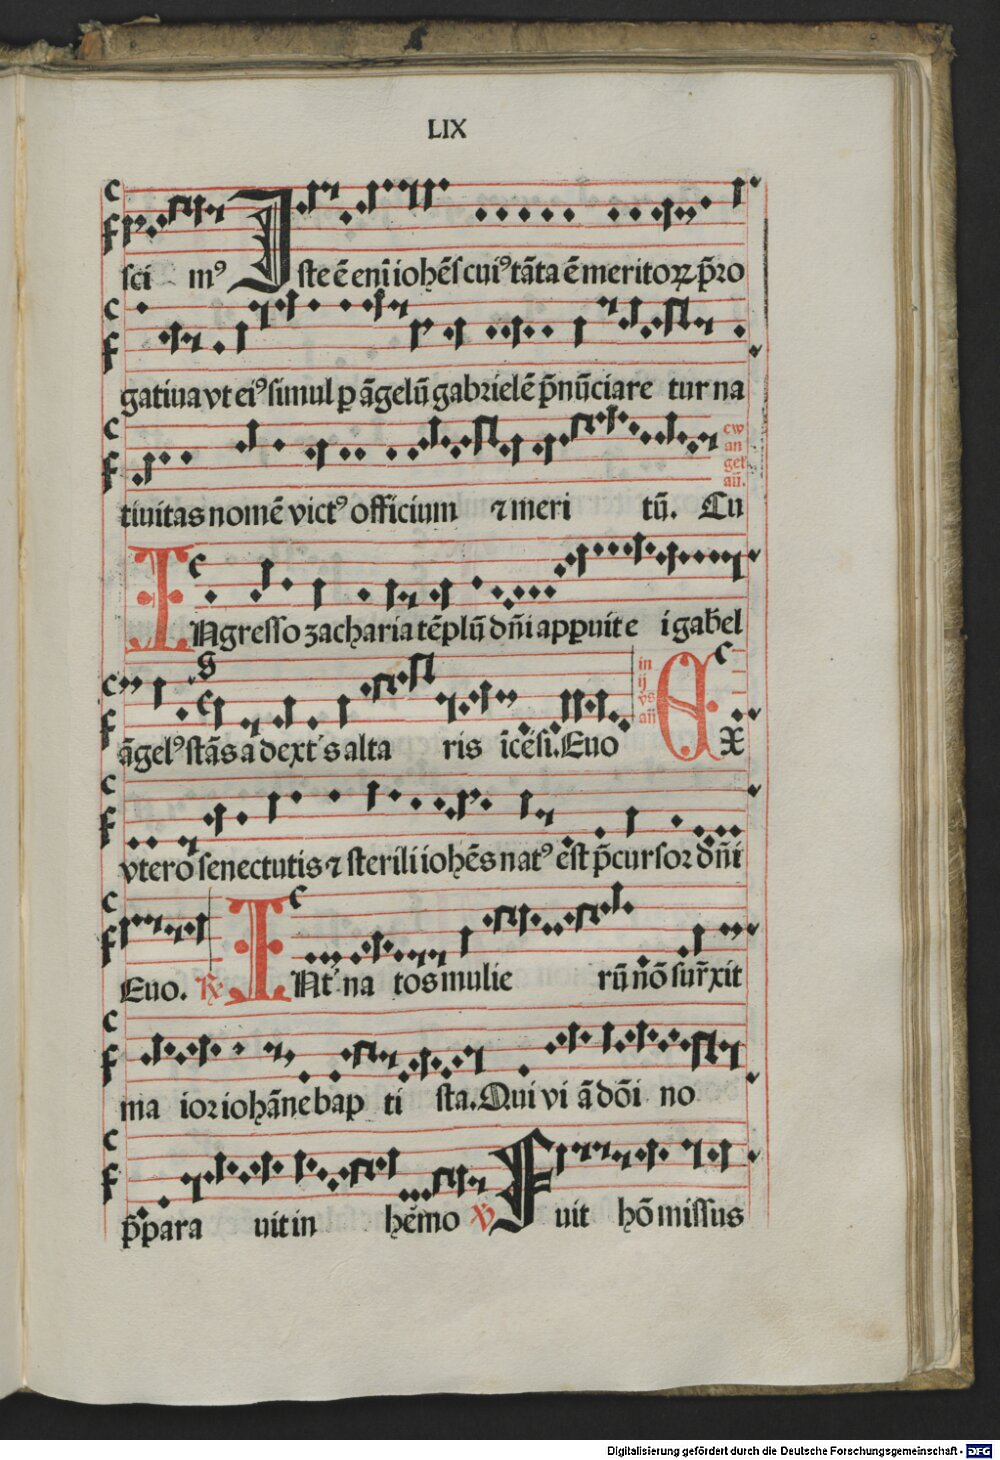 LIX
sci mꝰ Iste ē enī iohēs cuiꝰ tāta ē meritoꝝ p̄ro
gatiua vt eiꝰ simul ꝑ āgelū gabrielē p̄nūciare tur na
tiuitas nomē victꝰ officium ⁊ meri tū. Cu
ew
an
gel
aū.
INgresso zacharia tēplū dn̄i apꝑuit e i gab̄el
āgelꝰ stās a dext's alta ris īcēsi. Euo
in
ij
vs
aū
EX
vtero senectutis ⁊ sterili iohēs natꝰ est p̄cursor dn̄i
Euo. ℟ INt' na tos mulie rū nō surr̄xit
ma ior iohāne bap ti sta. Qui vi ā dōi no
p̄para uit in hēmo ℣ Fuit hō missus
Digitalisierung gefördert durch die Deutsche Forschungsgemeinschaft - DFG